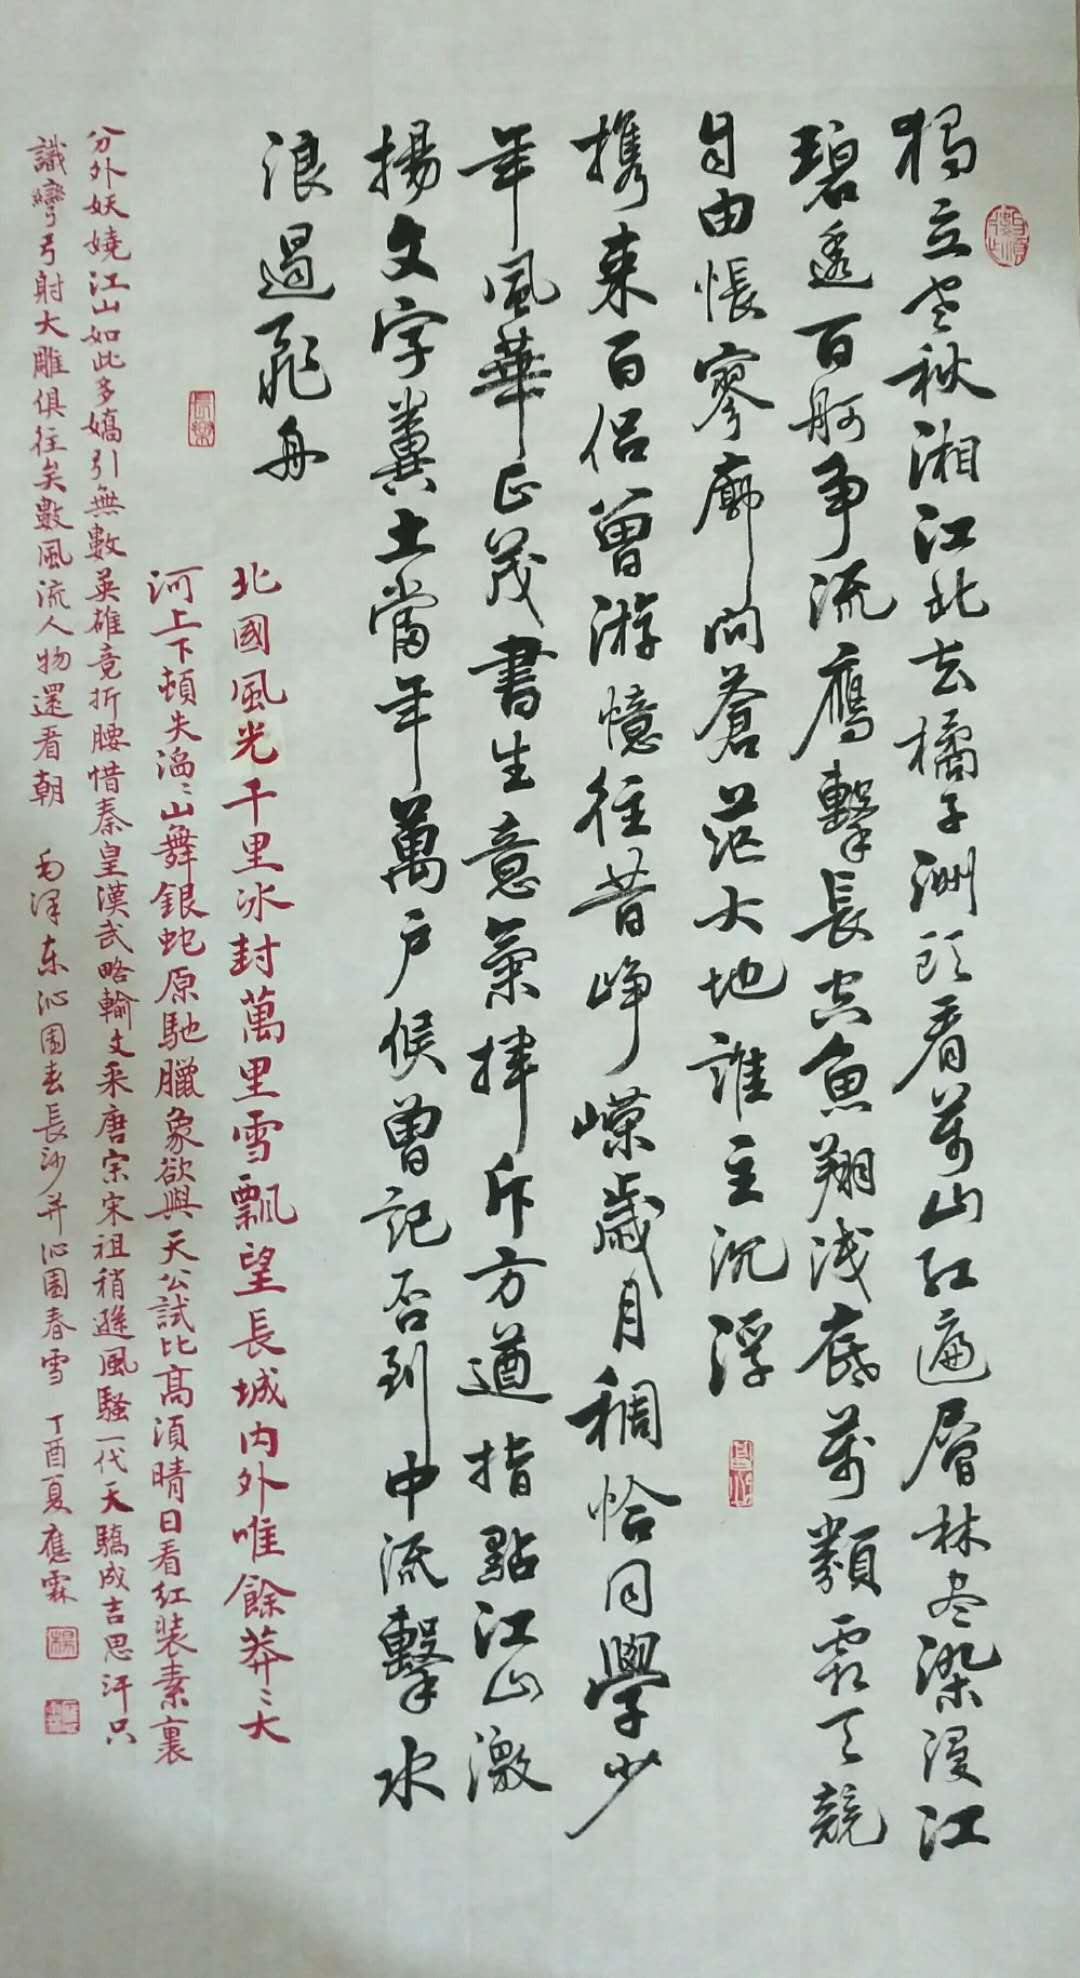 獨立寒秋湘江北去橘子洲頭看萬山紅遍層林尽染漫江
碧透百舸争流鷹擊長空魚翔浅底萬類霜天競
自由悵寥廓問蒼茫大地誰主沉浮
携来百侣曾游憶往昔崢嶸歲月稠恰同學少
年風華正茂書生意氣揮斥方遒指點江山激
揚文字糞土當年萬户候曾記否到中流擊水
浪遏飛舟
北國風光千里冰封萬里雪飄望長城内外唯餘莽〻大
河上下頓失滔〻山舞銀蛇原馳臘象欲與天公試比高須晴日看紅装素裹
分外妖嬈江山如此多嬌引無數英雄竟折腰惜秦皇漢武略輸文采唐宗宋祖稍遜風騷一代天驕成吉思汗只
識彎弓射大雕俱往矣數風流人物還看朝 毛澤東沁園春長沙并沁園春雪 丁酉夏應霖
長樂